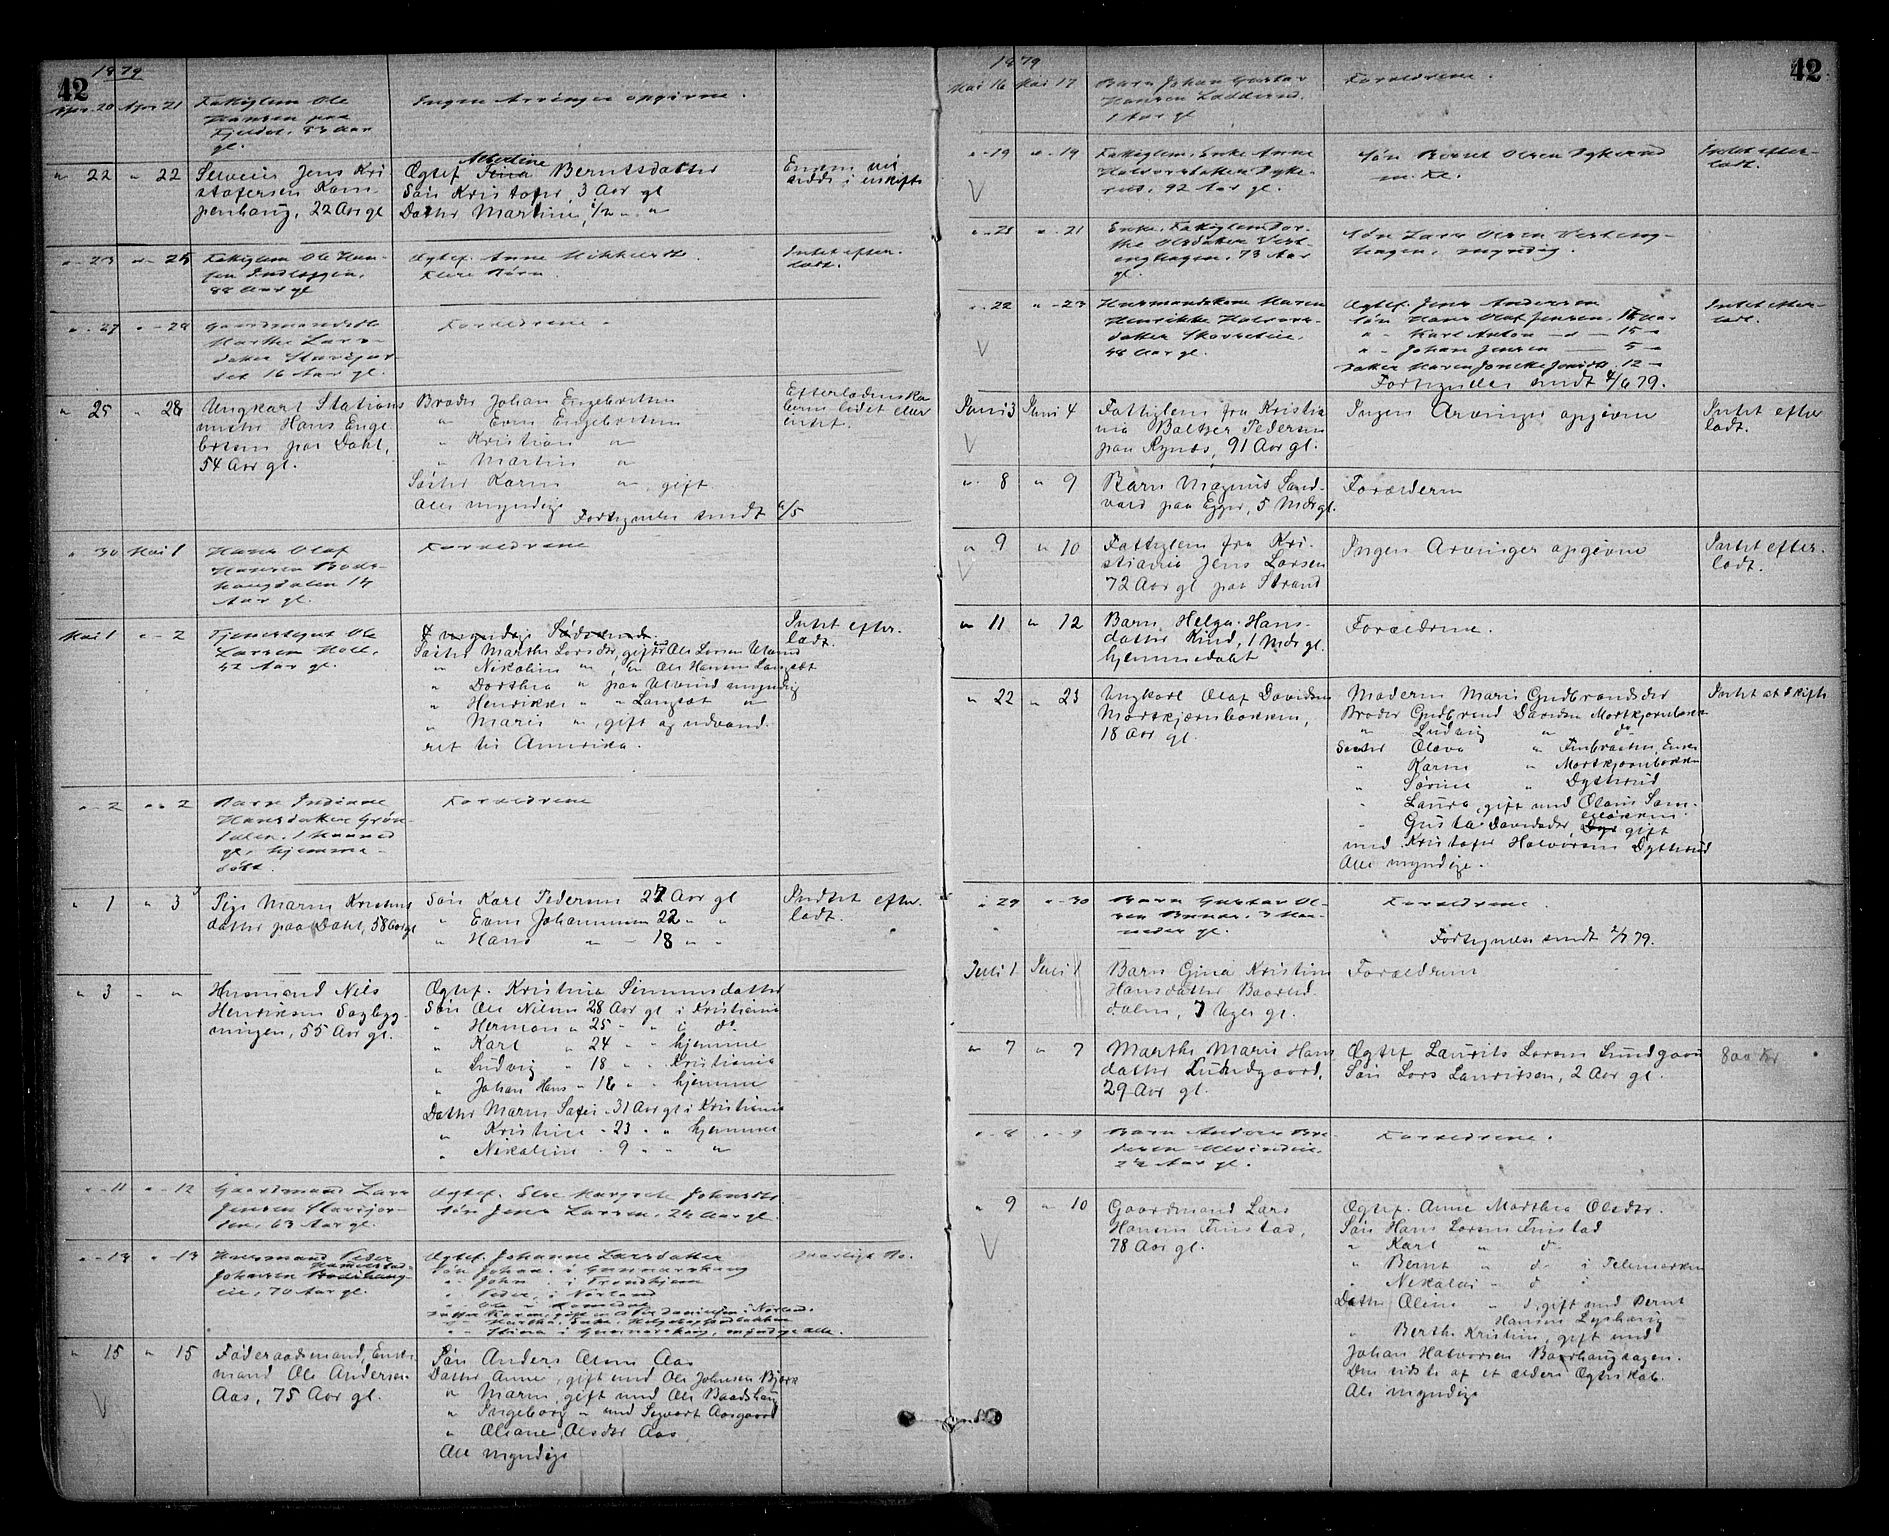 42
1879
Apr. 20 Apr. 21 Fattiglem Ole
Hansen paa
Fjeldet, 83 Aar
gl.
Ingen Arvinger opgivne.
" 22 " 22 Selveier Jens Kri
stofersen Kam
penhaug, 22 Aar gl
Ægtef. Albertine Berntsdatter
Søn Kristofer, 3 Aar gl
Datter Martine, 1/2 " "
Enken vil
sidde i uskifte
" - 23 " - 25 Fattiglem Ole Han-
sen
88 Aar gl
Ægtef. Anne Mikkelsdtr.
Flere Børn.
Intet efter-
ladt.
" - 27 " - 29 Gaardmandsdtr
Marthe Lars-
datter
16 Aar gl.
Forældrene.
" 25 " 28 Ungkarl Stations
mester Hans Enge
bretsen paa Dahl,
54 Aar gl.
Broder Johan Engebretsen
" Even Engebretsen
" Kristian "
" Martin "
Søster Karen " , gift.
Alle myndige
Fortegnelse sendt 6/5
Efterladenska
berne lidet eller
intet.
" 30 Mai 1 Hans Olaf
Hansen Bods-
haugdalen 14
Aar gl.
Forældrene
Mai 1 " - 2 Tjenestegut Ole
Larsen Holt,
42 Aar gl.
4 myndige Sødskende.
Søster Marthe Larsdtr, gift Ole Larsen Ulvind
" Nikoline " " Ole Hansen Langsæt
" Dorthea " paa Ulvind myndig
" Henrikke " " Langsæt "
" Maria " , gift og udvand-
ret til Amerika.
Intet efter-
ladt.
" - 2 " - 2 Barn Indiane
Hansdatter Grøn-
dalen, 1 Maaned
gl., hjemme-
døbt.
Forældrene
" 1 " 3 Pige Maren Kristens
datter paa Dahl, 58 Aar gl
Søn Karl Pedersen 27 Aar gl
" Even Johannesen 22 " "
" Hans " - 18 " "
Indtet efter-
ladt.
" 3 " " Husmand Nils
Henriksen Sagbyg-
ningen, 55 Aar gl.
Ægtef. Kristina Simensdatter
Søn Ole Nilsen 28 Aar gl i Kristiania
" Herman " 25 " " i do
" Karl " 24 " " hjemme
" Ludvig " 18 " " Kristiania
" Johan Hans " 16 " " hjemme
Datter Maren Sofie - 31 Aar gl i Kristiania
" Kristine - 23 " " hjemme
" Nikoline - 9 " " "
" - 11 " - 12 Gaardmand Lars
Jensen Stavsjor-
det, 63 Aar gl.
Ægtef. Else Margrete Johnsdtr.
Søn Jens Larsen, 24 Aar gl.
" - 13 " - 13 Husmand Peder
Johansen
eie, 70 Aar gl.
Ægtef. Johanne Larsdatter
Søn Johan i Gunnarshaug
" John i Trondhjem
" Peder, i Norland
" Ole i Romedal
Datter Karen, gift m. Per Danielsen i Norland.
" Marthe, Enke,
" Stina i Gunnarshaug, myndige alle.
" 15 " 15 Føderaadsmand, Enke-
mand Ole Andersen
Aas, 75 Aar gl.
Søn Anders Olsen Aas
Datter Anne, gift med Ole Johnsen Bjørke
" Maren, gift med Ole Baadshaug
" Ingeborg " med Syvert Aasgaard
" Oliane Olsdtr Aas
Alle myndige
42
1879
Mai 16 Mai 17 Barn Johan Gustav
Hansen Ladderud
1 Aar gl
Forældrene.
" - 19 " - 19 Fattiglem, Enke Anne
Halvorsdatter Dyke-
rud, 92 Aar gl.
Søn Bernt Olsen Dykerud
m. Fl.
Intet efter-
ladt.
" - 21 " - 21 Enke, Fattiglem Dor-
the Olsdatter Vesteng-
hagen, 73 Aar
gl.
Søn Lars Olsen Vesteng-
hagen, myndig.
" - 22 " - 23 Husmandskone Maren
Henrikke Halvors-
datter Skovseteie,
48 Aar gl.
Ægtef. Jens Andersen
Søn Hans Olaf Jensen, 18 Aar
" - Karl Anton - " - 15 - "
" - Johan Jensen - 5 - "
Datter Maren 12 -
Fortegnelse sendt 4/6 79.
Intet efter-
ladt.
Juni 3 Juni 4 Fattiglem fra Kristia
nia Baltzer Pedersen
paa Rynæs, 91 Aar gl.
Ingen Arvinger opgivne
Intet efter
ladt.
" 8 " 9 Barn Magnus Sand-
vard paa Egger, 5 Mdr gl.
Forældrene
" 9 " 10 Fattiglem fra Kri-
stiania Jens Larsen
72 Aar gl paa Strand
Ingen Arvinger opgivne
Intet efter-
ladt.
" 11 " 12 Barn, Helga Hans-
datter Kind, 1 Mdr gl.
hjemmedøbt
Forældrene.
" 22 " 23 Ungkarl Olaf Davidsen
Mortkjærnbakken,
18 Aar gl.
Moderen Mari Gudbrandsdtr
Broder Gudbrand Davidsen Mortkjærnbakken
" Ludvig " do
Søster Olava " Finbraaten, Enke
" Karen " Mortkjærnbakken
" Sørine " Dytterud
" Laura, gift med Olaus Sam-
" Gusta Davidsdtr, gift
med Kristofer Halvorsen Dytterud
Alle myndige.
Intet at skifte
" 29 " - 30 Barn Gustav Ol-
sen 3 Maa-
neder gl.
Forældrene.
Fortegnelse sendt 2/7 79.
Juli 1 Juli 1 Barn Gina Kristine
Hansdatter Baarlid-
dalen, 7 Uger gl.
Forældrene
" 7 " 7 Marthe Marie Hans
datter Lundgaard,
29 Aar gl.
Ægtef Laurits Larsen Lundgaard
Søn Lars Lauritsen, 2 Aar gl.
800 Kr
" - 8 " 9 Barn Anders
Aar gl.
Forældrene.
" 9 " 10 Gaardmand Lars
Hansen Finstad,
78 Aar gl.
Ægtef. Anne Marthea Olsdtr.
Søn Hans Larsen Finstad
" Karl " do
" Bernt " do i Telemarken
" Nikolai - do i
Datter Oline " d, gift med Bernt
Hansen Lyshaug
" Berthe Kristine, gift med
Johan Halvorsen Baarhaughagen.
Den sidste af et ældre Ægteskab.
Alle myndige